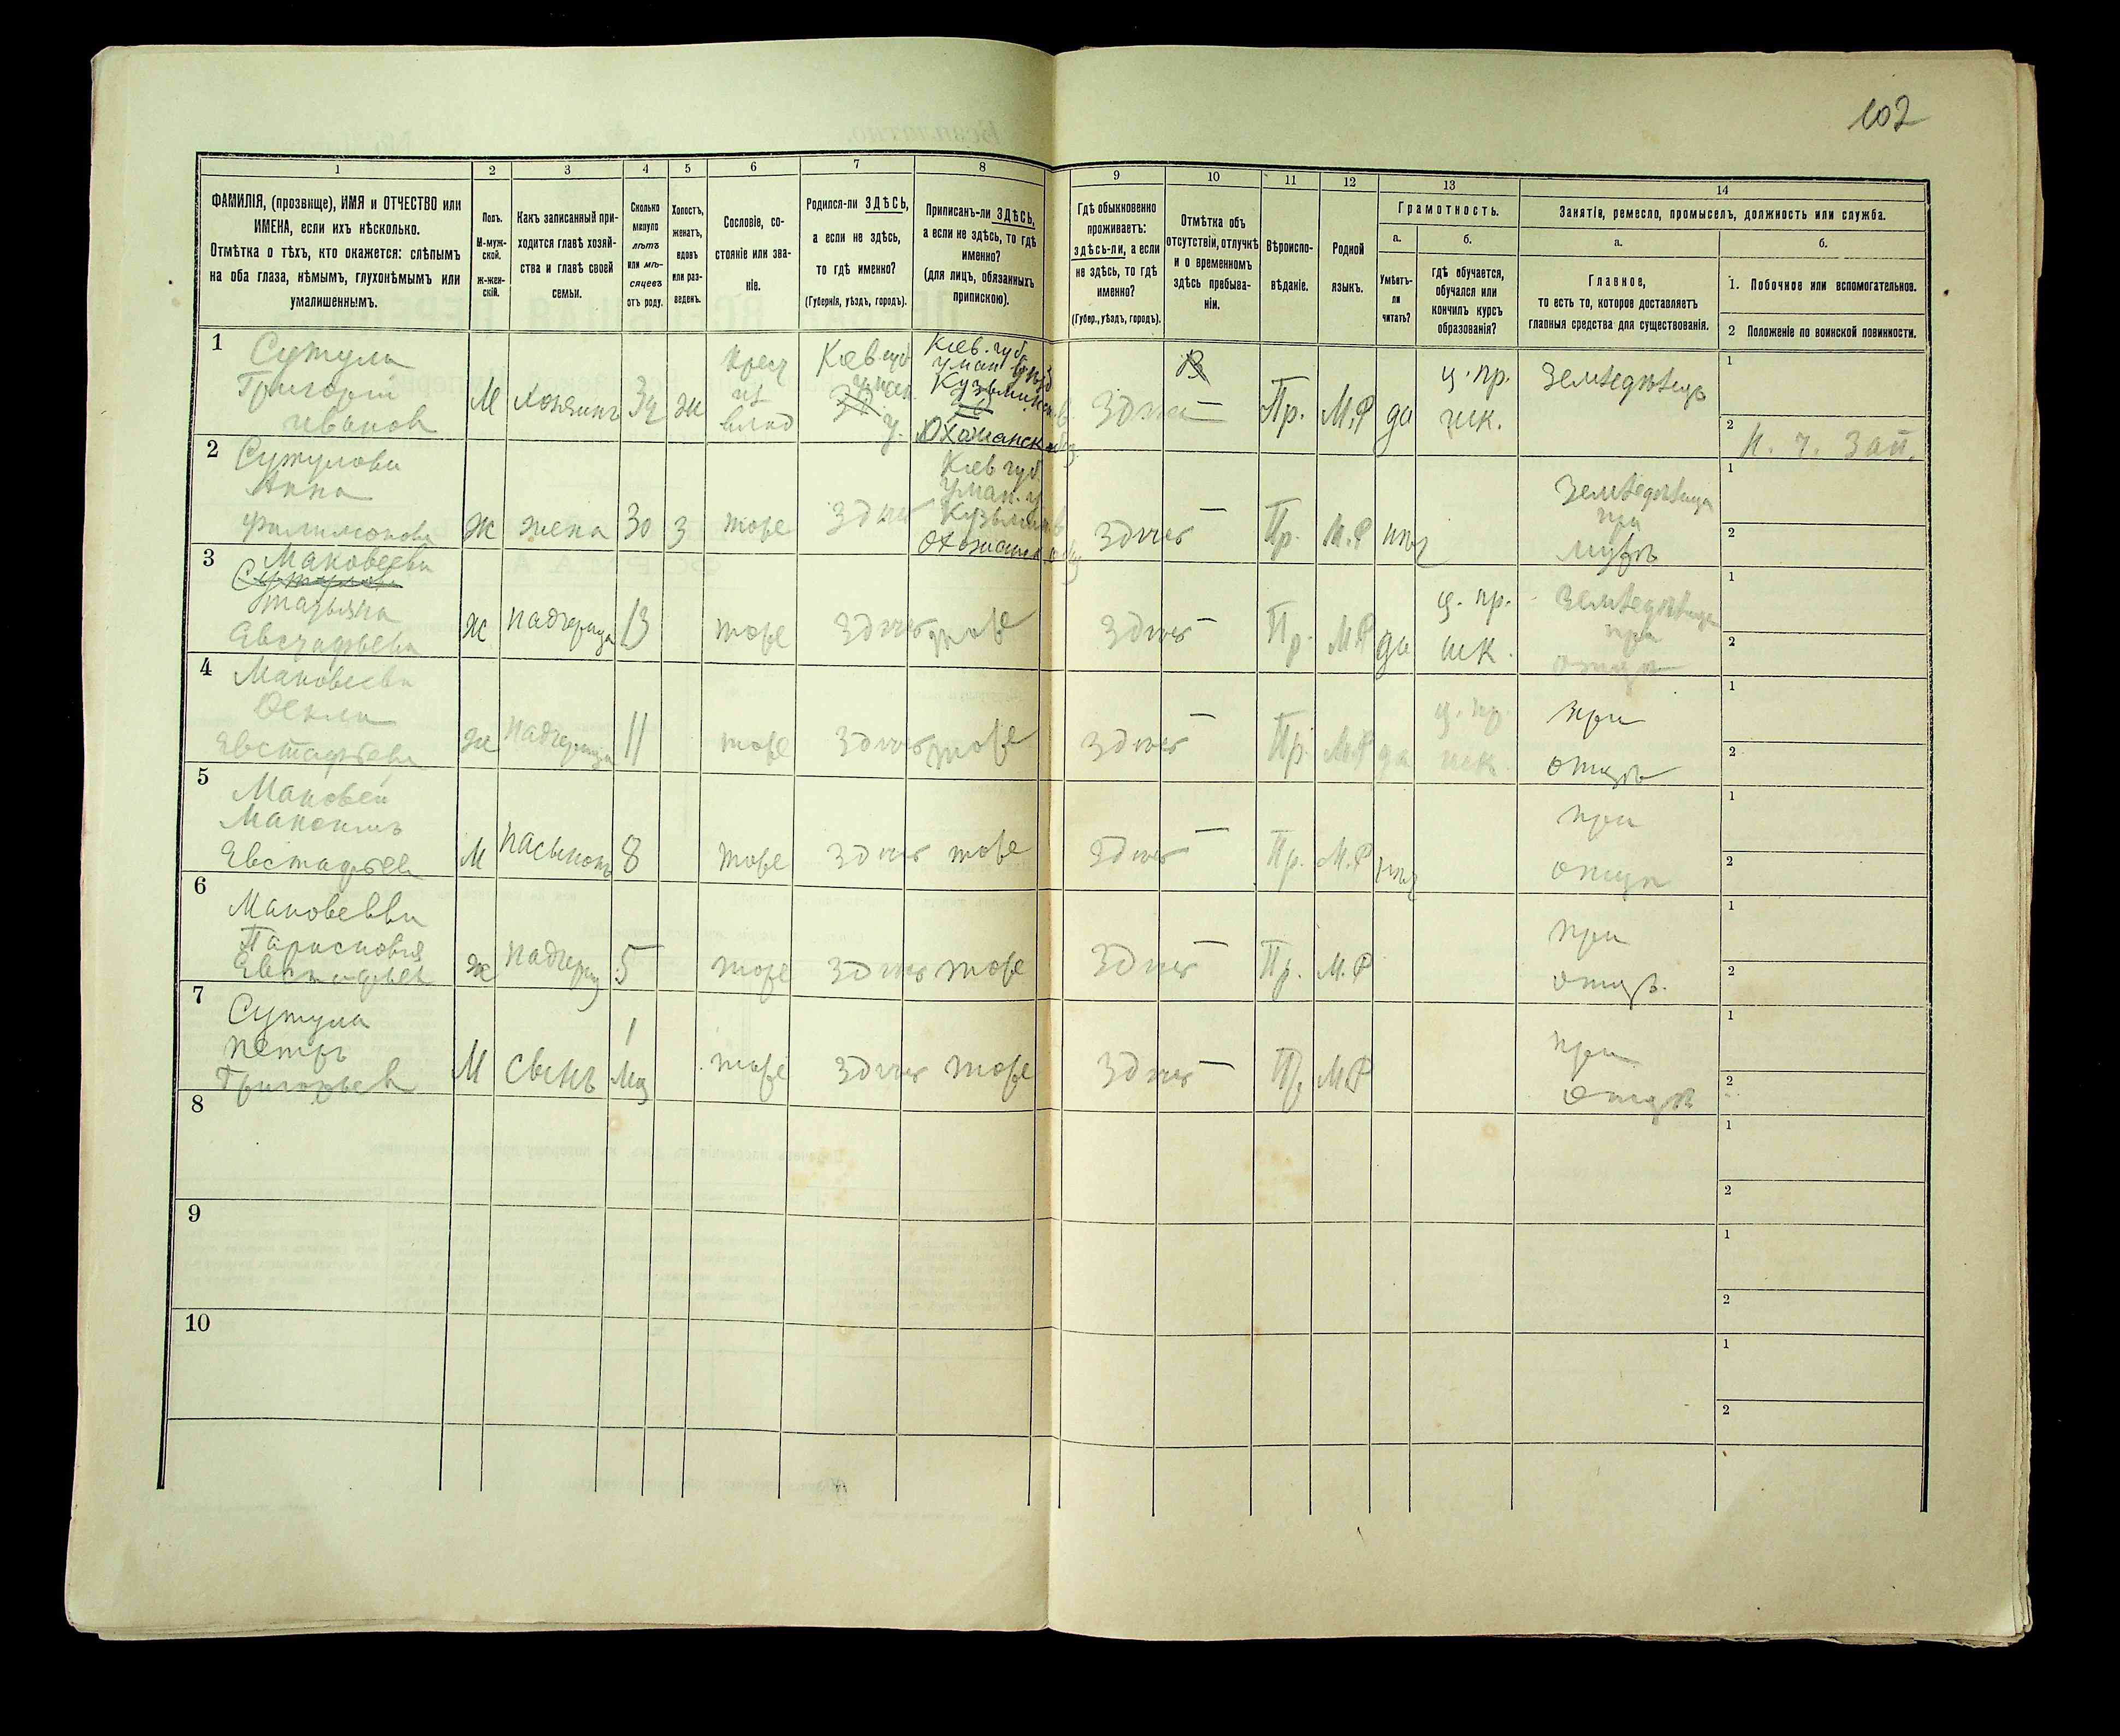 102
1
2
3
4
5
6
7
8
9
10
11
12
13
14
ФАМИЛІЯ, (прозвище), ИМЯ и ОТЧЕСТВО или
ИМЕНА, если ихъ нѣсколько.
Отмѣтка о тѣхъ, кто окажется: слѣпымъ
на оба глаза, нѣмымъ, глухонѣмымъ или
умалишеннымъ.
Полъ.
М-муж-
ской.
ж-жен-
скій.
Какъ записанный при-
ходится главѣ хозяй-
ства и главѣ своей
семьи.
Сколько
минуло
лѣтъ
или мѣ-
сяцевъ
отъ роду.
Холостъ,
женатъ,
вдовъ
или раз-
веденъ.
Сословіе, со-
стояніе или зва-
ніе.
Родился-ли ЗДѢСЬ,
а если не здѣсь,
то гдѣ именно?
(Губернія, уѣздъ, городъ).
Приписанъ-ли ЗДѢСЬ,
а если не здѣсь, то гдѣ
именно?
(для лицъ, обязанныхъ
припискою).
Гдѣ обыкновенно
проживаетъ:
здѣсь-ли, а если
не здѣсь, то гдѣ
именно?
(Губер., уѣздъ, городъ).
Отмѣтка объ
отсутствіи, отлучкѣ
и о временномъ
здѣсь пребыва-
ніи.
Вѣроиспо-
вѣданіе.
Родной
языкъ.
Грамотность.
а.
Умѣетъ-
ли
читать?
б.
гдѣ обучается,
обучался или
кончилъ курсъ
образованія?
Занятіе, ремесло, промыселъ, должность или служба.
а.
Главное,
то есть то, которое доставляетъ
главныя средства для существованія.
б.
1. Побочное или вспомогательное.
2 Положеніе по воинской повинности.
1
Сутула
Григорій
Иванов
М
хозяинъ
34
ж
крест
из
влад
Кіев. губ
уман.
у.
Кіев. губ.
уман. уѣзд
Кузьминск. в.
Охожанск
здѣсь —
Пр.
М.Р
да
ц. пр.
шк.
Земледѣлецъ
1
2
Н. ч. зап.
2
Сутулова
Анна
Филимонова
Ж
жена
30
з
тоже
здѣсь
Кіев губ
Уман. у
Кузьмин в
Охожанск
здѣсь —
Пр.
М.Р
нѣт
Земледѣлица
при
мужѣ
1
2
3
Маковеева
Сутулова
Татьяна
Евстафьева
ж
падчерица
13
тоже
здѣсь
тоже
здѣсь —
Пр.
М.Р
да
ц. пр.
шк.
Земледѣлица
при
отцѣ
1
2
4
Маковеева
Ѳекла
Евстафьева
ж
падчерица
11
тоже
здѣсь
тоже
здѣсь —
Пр.
М.Р
да
ц. пр.
шк.
при
отцѣ
1
2
5
Маковей
Максимъ
Евстафьев
М
пасынокъ
8
тоже
здѣсь
тоже
здѣсь —
Пр.
М.Р
нѣт
при
отцѣ
1
2
6
Маковеева
Парасковія
Евстафьев
ж
падчериц
5
тоже
здѣсь
тоже
здѣсь —
Пр.
М.Р
при
отцѣ.
1
2
7
Сутула
Петръ
Григорьев
М
сынъ
1
мц
тоже
здѣсь
тоже
здѣсь —
Пр
М.Р
при
отцѣ
1
2
8
1
2
9
1
2
10
1
2